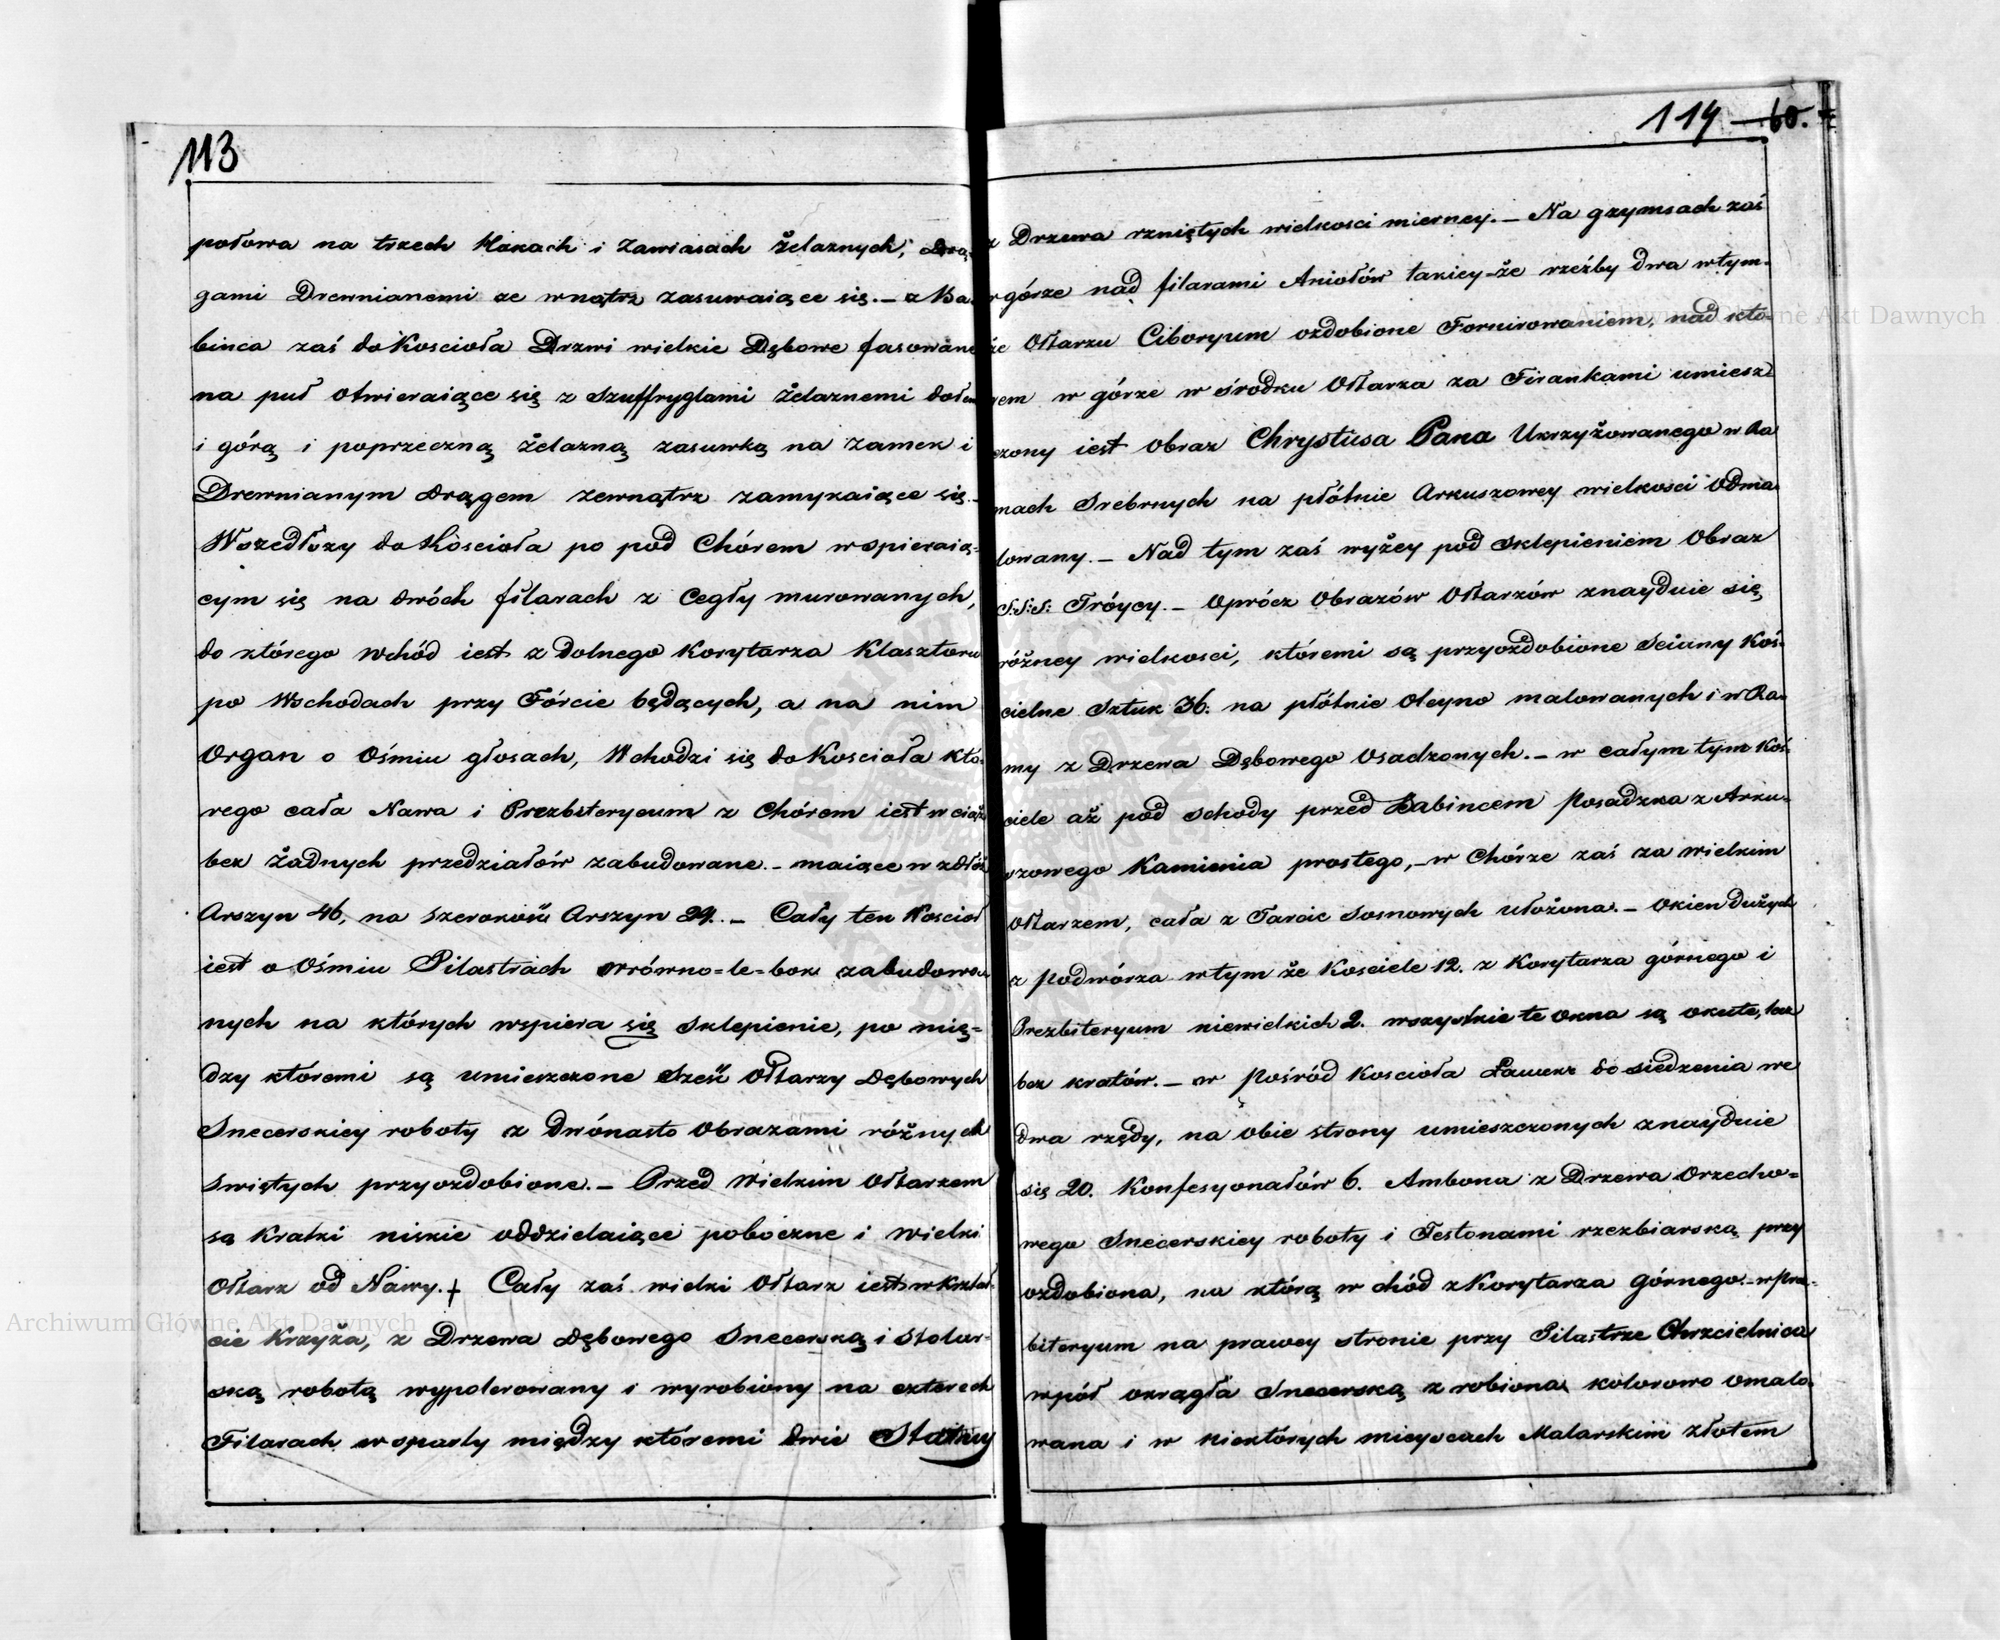 113
połowa na trzech Hakach i Zawiasach Żelaznych; Drą-
gami Drewnianemi ze wnątrz zasuwaiące się. – z Ba-
binca zaś do Kościoła Drzwi wielkie Dębowe fasowane
na puł otwieraiące się z Szuffryglami Żelaznemi dołem
i górą i poprzeczną Żelazną zasuwką na Zamek i
Drewnianym drągem zewnątrz zamykaiące się. –
Wszedłszy do Kościoła po pod Chórem wspieraią-
cym się na dwóch filarach z Cegły murowanych,
do którego Wchód iest z Dolnego Korytarza Klasztoru
po Wschodach przy Fórcie będących, a na nim
Organ o Ośmiu głosach, Wchodzi się do Kościoła któ-
rego cała Nawa i Prezbiteryum z Chórem iest w ciąż
bez Żadnych przedziałów zabudowane. – maiące w zdłóż
Arszyn 46, na Szerokość Arszyn 24. – Cały ten Kościoł
iest o Ośmiu Pilastrach wrówno=le=bok zabudowa-
nych na których wspiera się Sklepienie, po mię-
dzy któremi są umieszczone Sześć Ołtarzy Dębowych
Snecerskiey roboty z Dwónasto Obrazami różnych
Świętych przyozdobione. – Przed Wielkim Ołtarzem
są Kratki niskie oddzielaiące poboczne i Wielki
Ołtarz od Nawy. + Cały zaś wielki Ołtarz iest w kształ-
cie Krzyża, z Drzewa Dębowego Snecerską i Stolar-
ską robotą wypolerowany i wyrobiony na czterech
Filarach wsparty między któremi dwie Statuy
114 – 60.
z Drzewa rzniętych wielkosci mierney. – Na gzymsach zaś
w górze nad filarami Aniołów takiey-że rzeźby dwa w tym-
że Ołtarzu Ciboryum ozdobione Fornirowaniem, nad któ-
rem w górze w środku Ołtarza za Firankami umiesz-
czony iest Obraz Chrystusa Pana Ukrzyżowanego w Ra-
mach Srebrnych na płótnie Arkuszowey wielkosci Odma-
lowany. – Nad tym zaś wyżey pod Sklepieniem Obraz
S:S:S: Tróycy. – Oprócz Obrazów Ołtarzów znayduie się
różney wielkosci, któremi są przyozdobione Sciany Koś-
cielne Sztuk 36. na płótnie Oleyno malowanych i w Ra-
my z Drzewa Dębowego Osadzonych. – w całym tym Koś-
ciele aż pod Schody przed Babincem Posadzka z Arku-
szowego Kamienia prostego, – w Chórze zaś za wielkim
Ołtarzem, cała z Tarcic Sosnowych ułożona. – Okien Dużych
z Podwórza w tym że Kosciele 12. z Korytarza górnego i
Prezbiteryum niewielkich 2. wszystkie te Okna są okute, lecz
bez kratów. – w Pośród Kosciola Ławek do siedzenia we
dwa rzędy, na obie strony umieszczonych znayduie
się 20. Konfesyonałów 6. Ambona z Drzewa Orzecho-
wego Snecerskiey roboty i Festonami rzezbiarską przy
ozdobiona, na którą w chód z Korytarza górnego. – w Pre-
biteryum na prawey stronie przy Pilastrze Chrzcielnica
wpół okrągła Snecerską z robiona kolorowo omalo-
wana i w niektórych mieyscach Malarskim złotem